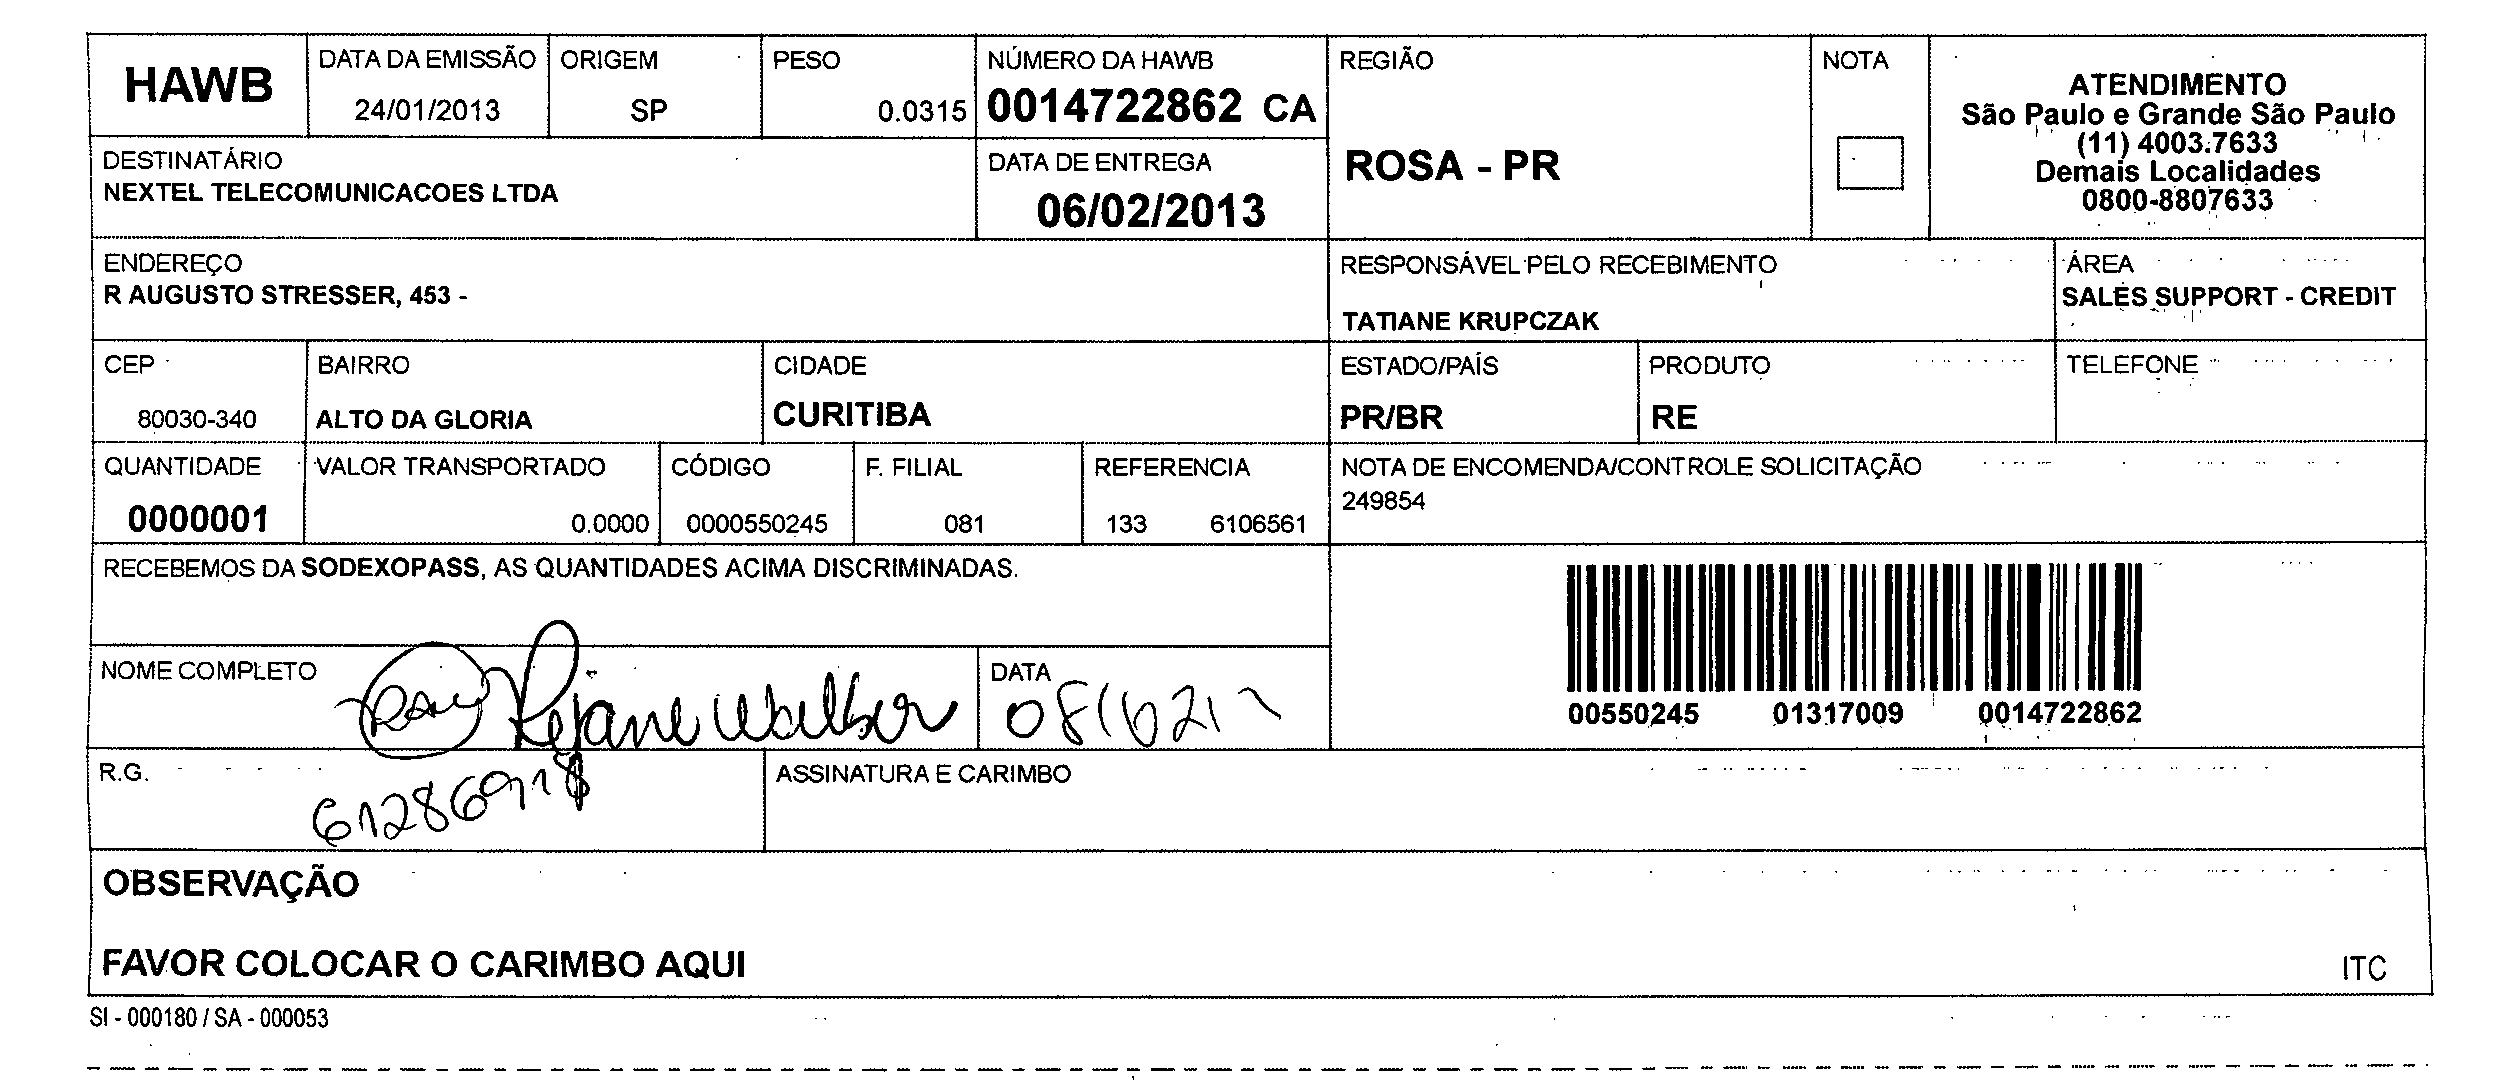 HAWB
DATA DA EMISSÃO
24/01/2013
ORIGEM
SP
PESO
0.0315
NÚMERO DA HAWB
0014722862 CA
REGIÃO
ROSA - PR
NOTA
ATENDIMENTO
São Paulo e Grande São Paulo
(11) 4003.7633
Demais Localidades
0800-8807633
DESTINATÁRIO
NEXTEL TELECOMUNICACOES LTDA
DATA DE ENTREGA
06/02/2013
ENDEREÇO
R AUGUSTO STRESSER, 453 -
RESPONSÁVEL PELO RECEBIMENTO
TATIANE KRUPCZAK
ÁREA
SALES SUPPORT - CREDIT
CEP
80030-340
BAIRRO
ALTO DA GLORIA
CIDADE
CURITIBA
ESTADO/PAÍS
PR/BR
PRODUTO
RE
TELEFONE
QUANTIDADE
0000001
VALOR TRANSPORTADO
0.0000
CÓDIGO
0000550245
F. FILIAL
081
REFERENCIA
133 6106561
NOTA DE ENCOMENDA/CONTROLE SOLICITAÇÃO
249854
RECEBEMOS DA SODEXOPASS, AS QUANTIDADES ACIMA DISCRIMINADAS.
00550245 01317009 0014722862
NOME COMPLETO
Rejane Walber
DATA
R.G.
612869718
ASSINATURA E CARIMBO
OBSERVAÇÃO
FAVOR COLOCAR O CARIMBO AQUI
ITC
SI - 000180 / SA - 000053